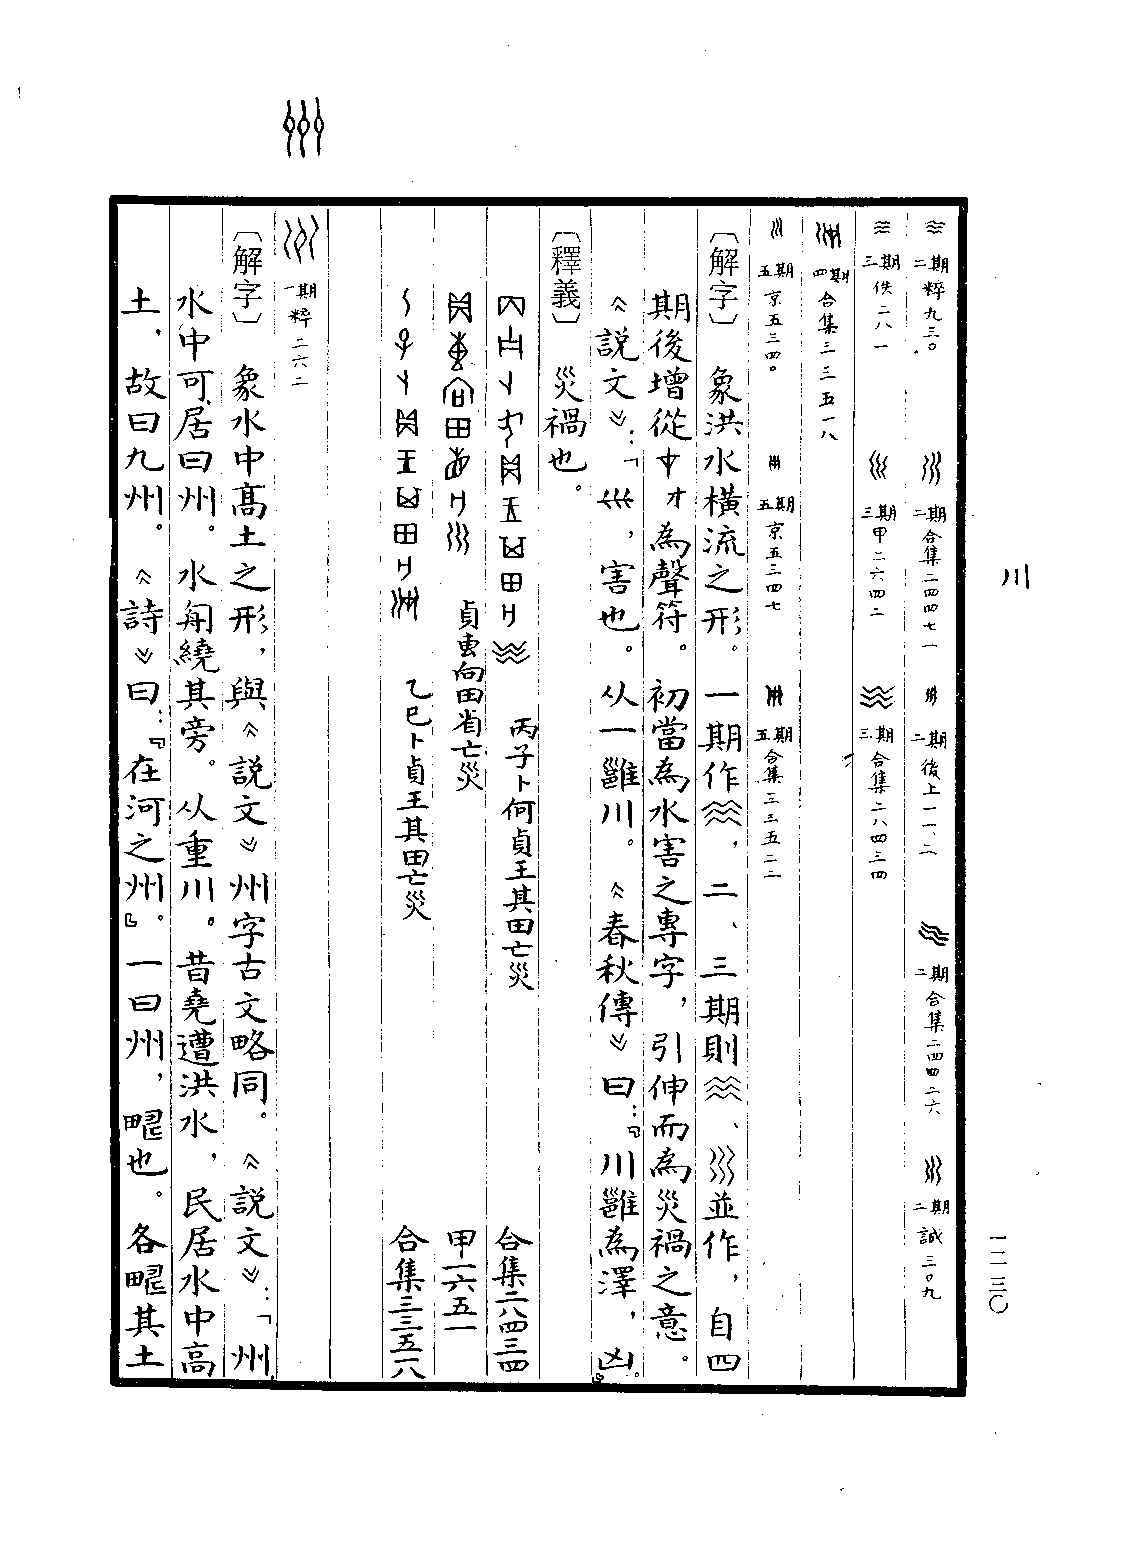 川
一一三〇
二期 粹九三〇
二期 合集二四四七一
二期 後上一一、二
二期 合集二四四二六
二期 誠三〇九
三期 佚二八一
三期 甲二六四二
三期 合集二八四三四
四期 合集三三五一八
五期 京五三四〇
五期 京五三四七
五期 合集三三五二二
〔解字〕 象洪水橫流之形。一期作,二、三期則、並作,自四
期後增從中才為聲符。初當為水害之專字,引伸而為災禍之意。
《説文》:「,害也。从一雝川。《春秋傳》曰:『川雝為澤,凶。』
〔釋義〕 災禍也。
丙子卜何貞王其田亡災 合集二八四三四
貞叀向田省亡災 甲一六五一
乙巳卜貞王其田亡災 合集三三五一八
一期 粹二六二
〔解字〕 象水中高土之形,與《説文》州字古文略同。《説文》:「州
水中可居曰州。水周繞其旁。从重川。昔堯遭洪水,民居水中高
土,故曰九州。《詩》曰:『在河之州。』一曰州,疇也。各疇其土